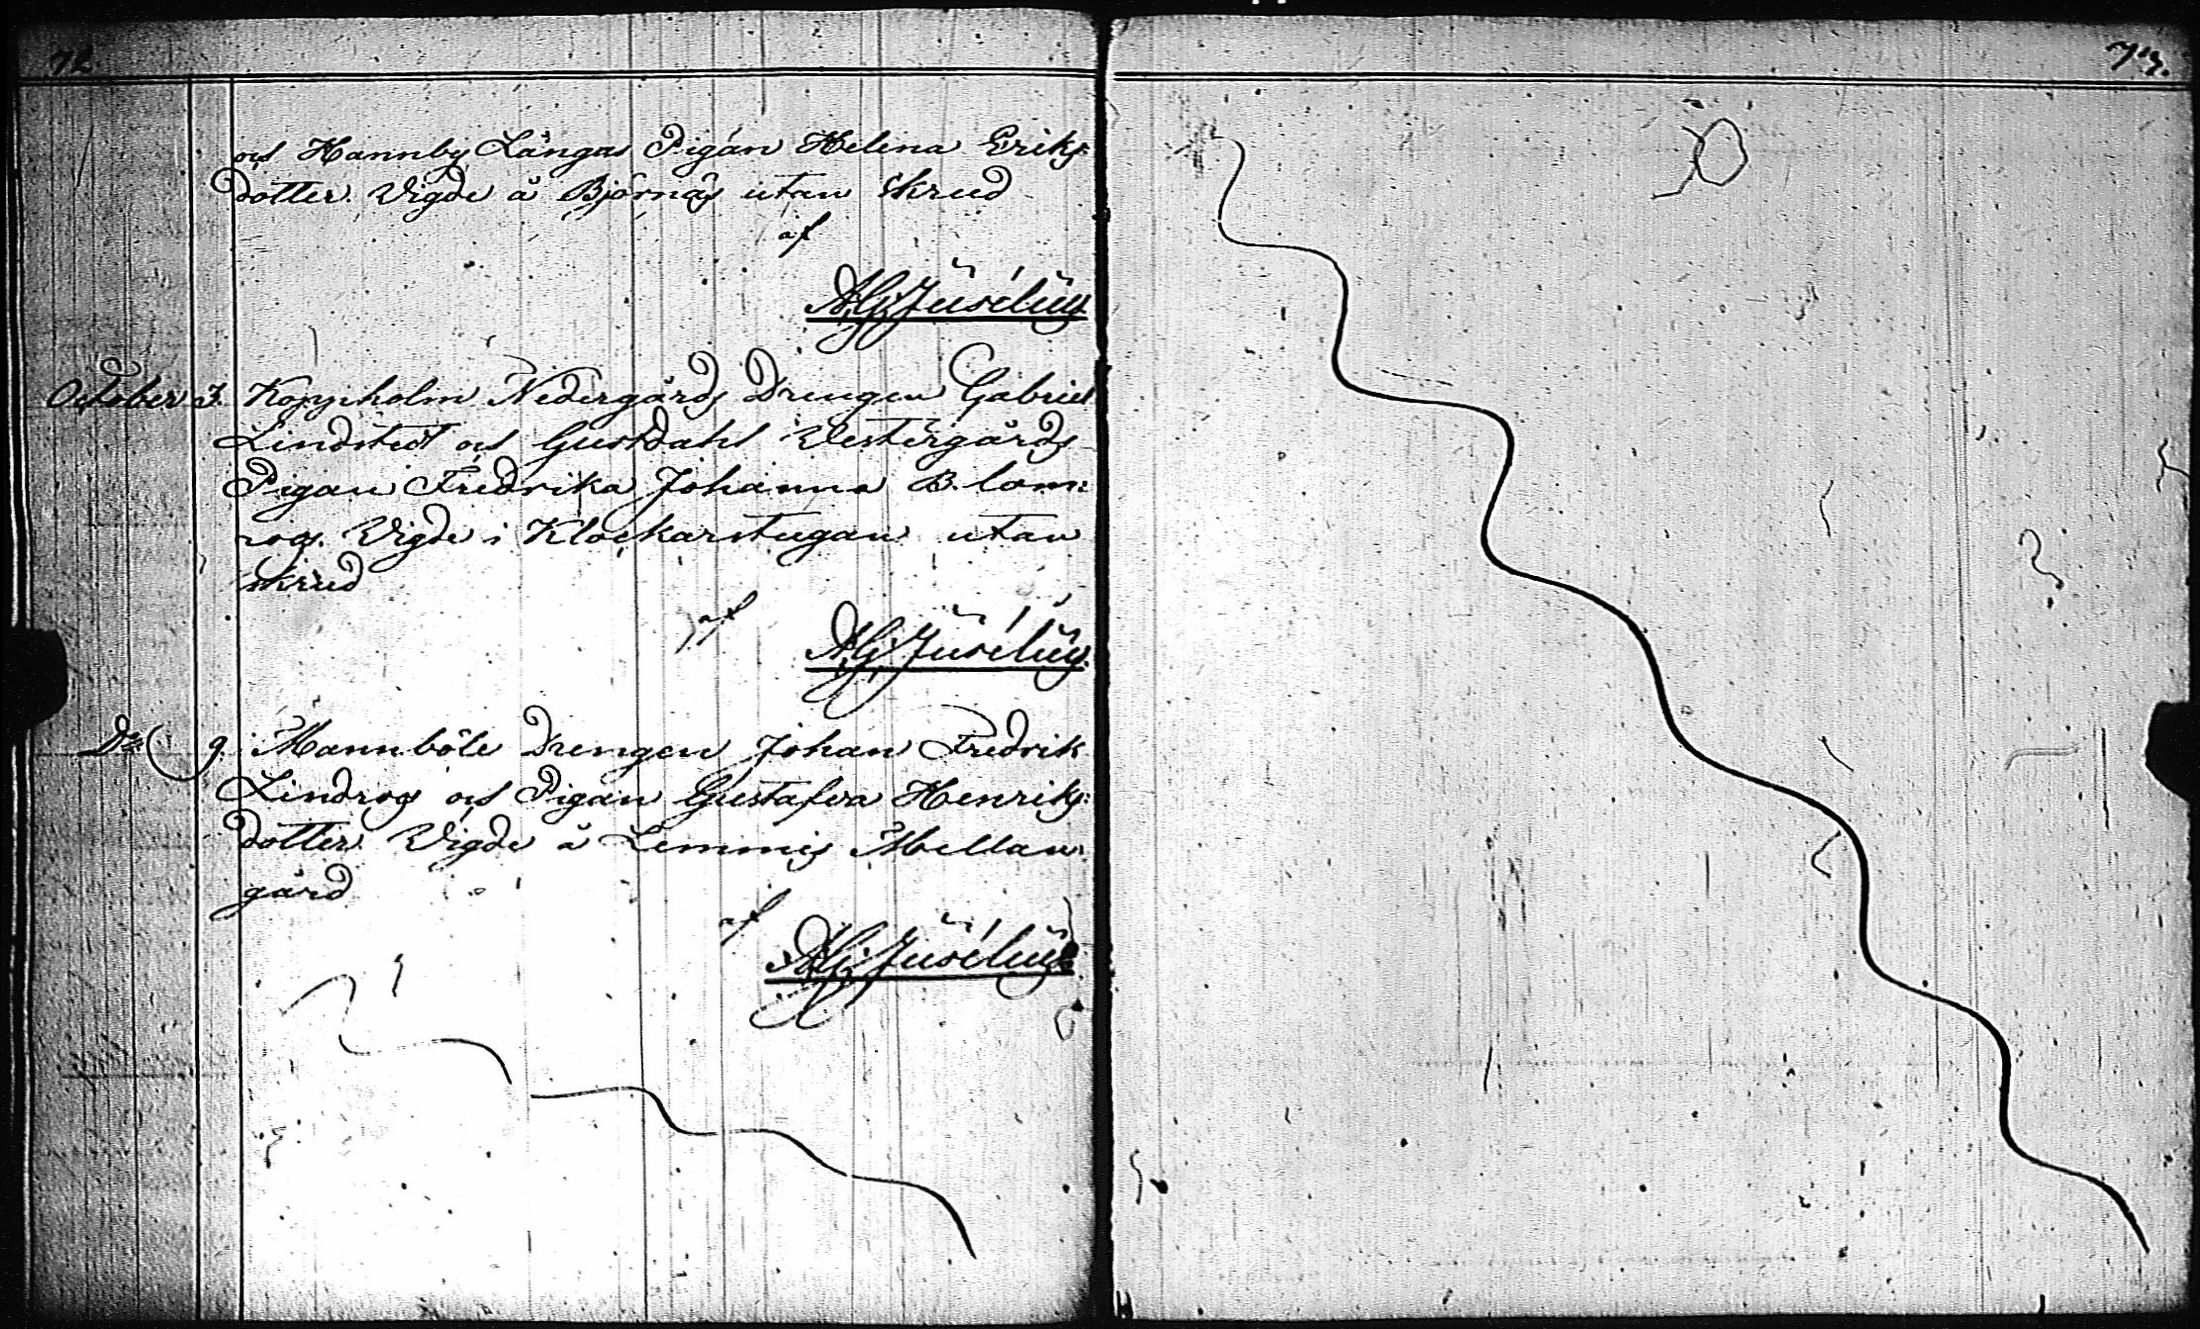 72
och Hannby Långas Pigan Helena Eriks
dotter. Vigde å Björnäs utan skrud
af
A. G. Jusélius
October 3. Koppholm Nedergårds Drengen Gabriel
Lindstedt och Gustdahl Vestergårds
Pigan Fredrika Johanna Blom:
ros. Vigde i Klockarstugan utan
skrud
af
A. G. Jusélius
Do 9. Mannböle Drengen Johan Fredrik
Lindros och Pigan Gustafva Henriks:
dotter. Vigde å Lemmis Mellan:
gård
af
A. G. Jusélius
73.